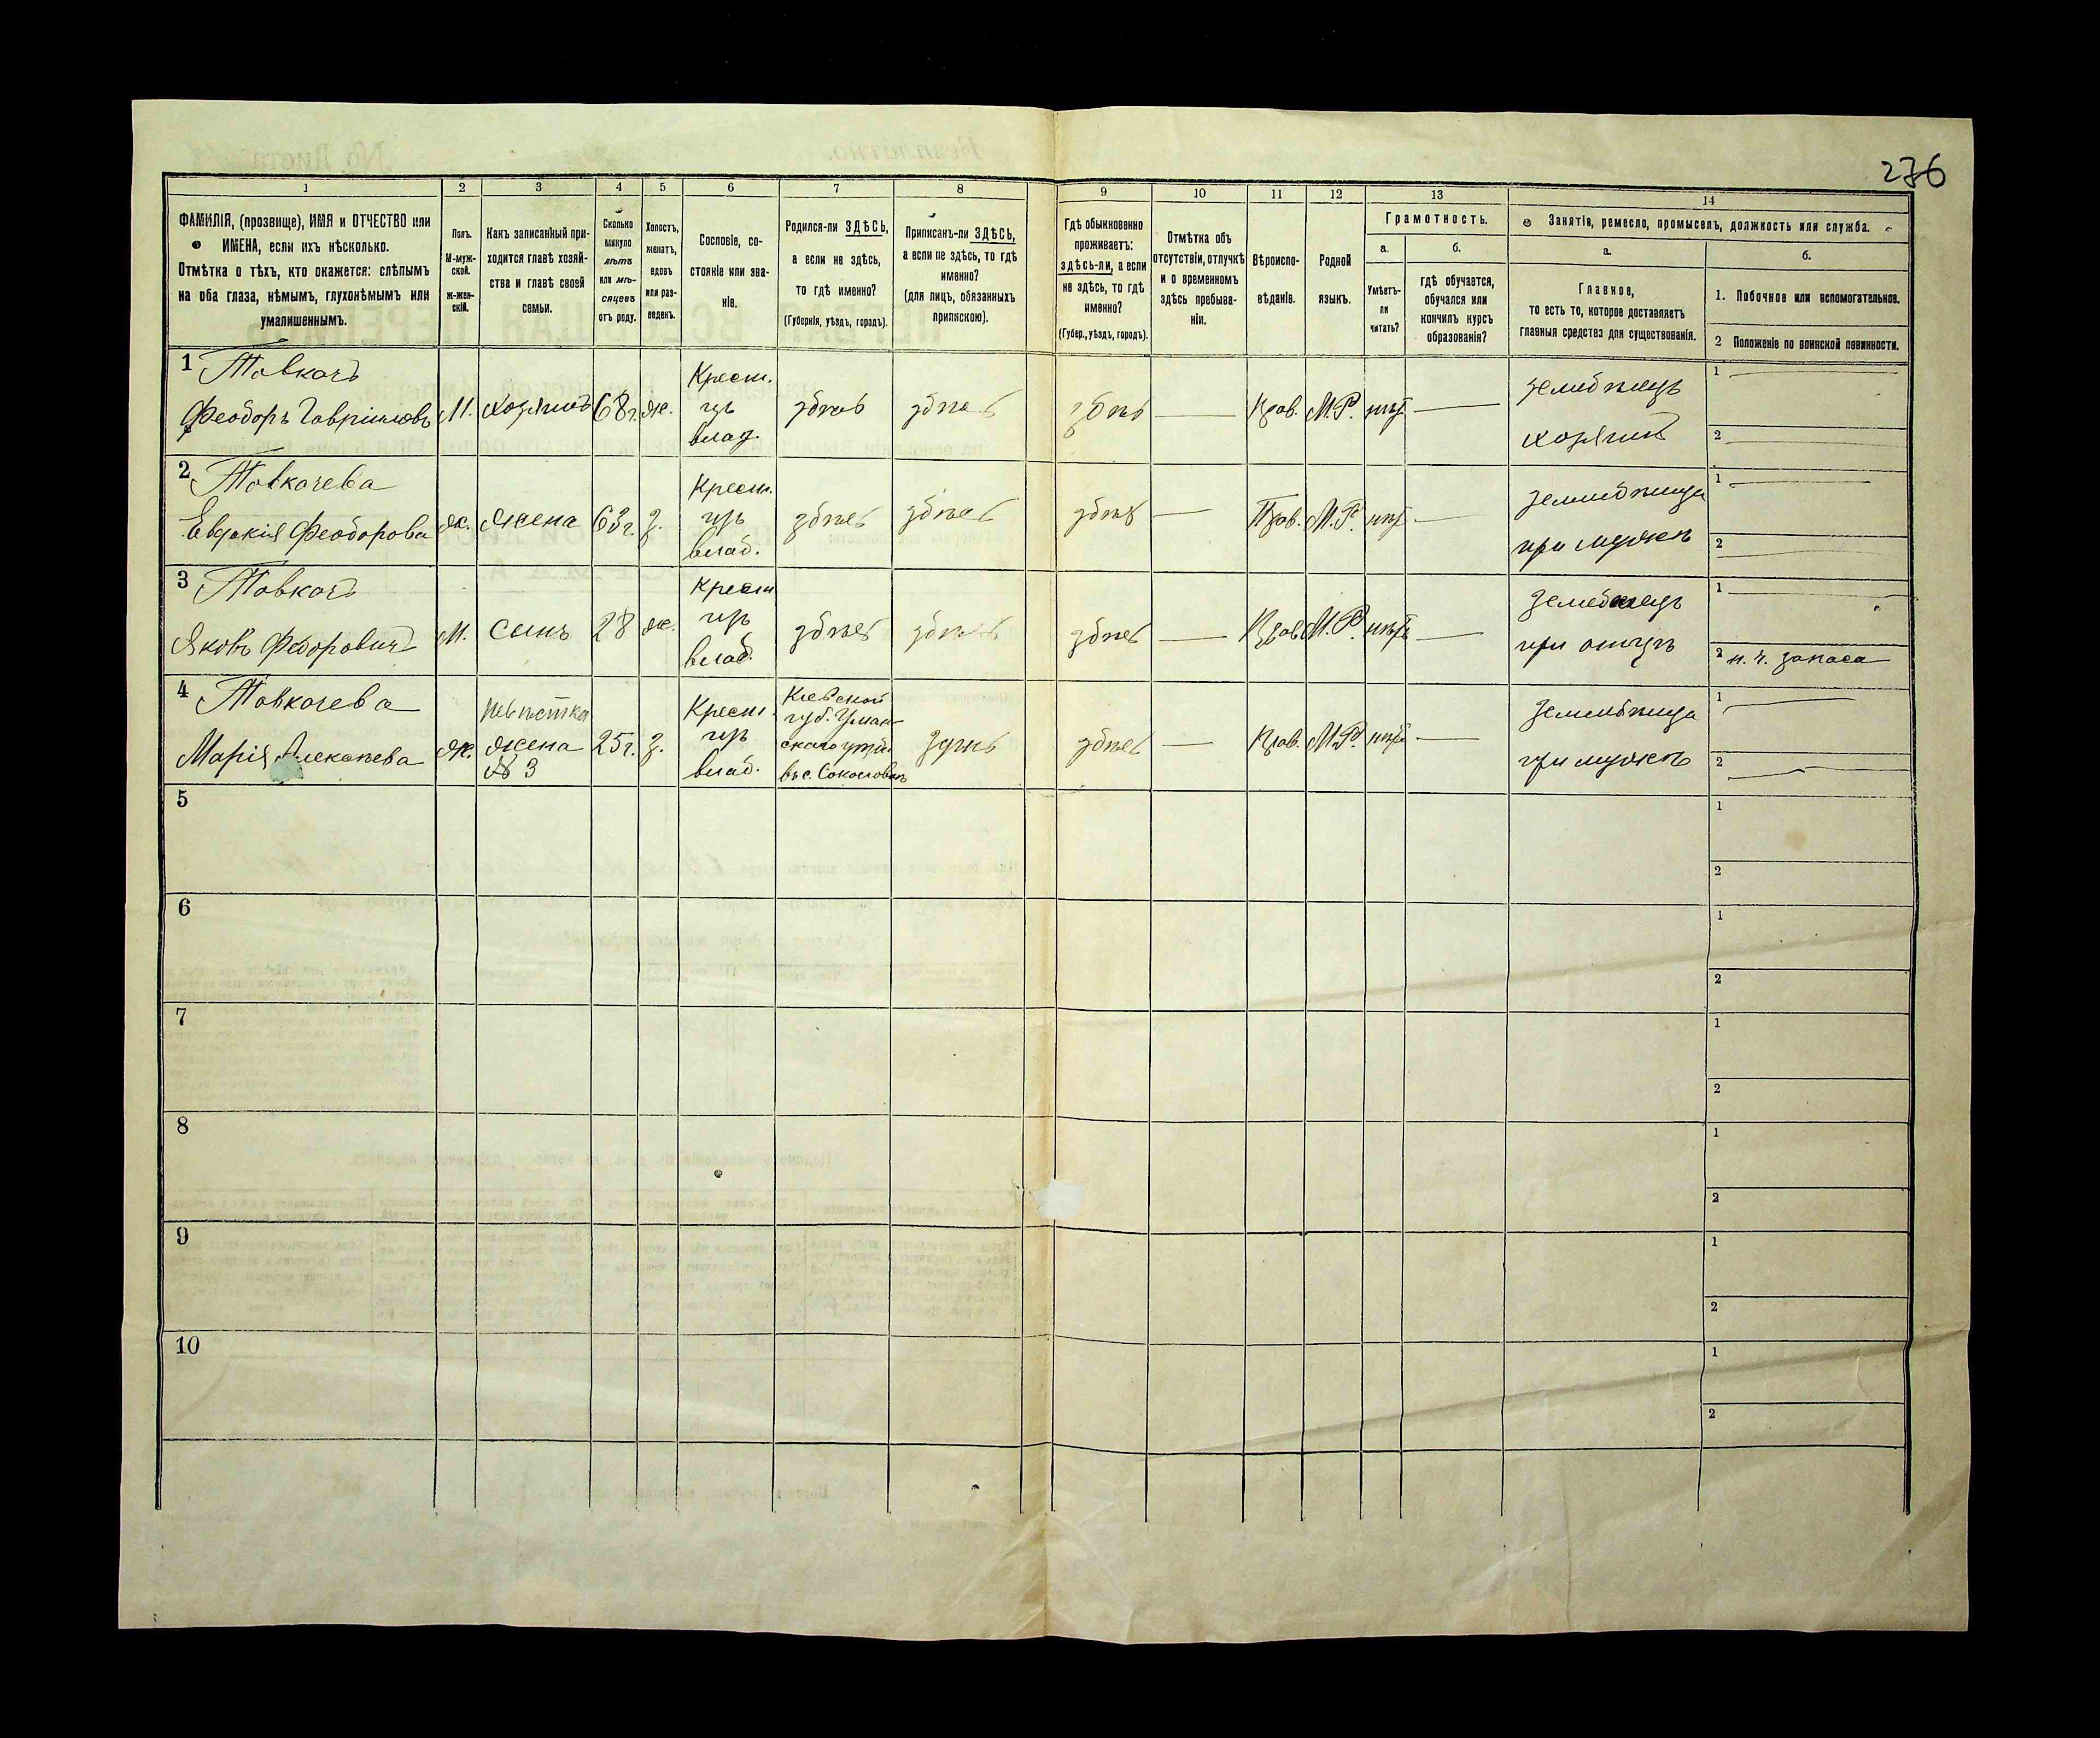 276
1 2 3 4 5 6 7 8 9 10 11 12 13 14
ФАМИЛІЯ, (прозвище), ИМЯ и ОТЧЕСТВО или
ИМЕНА, если ихъ нѣсколько.
Отмѣтка о тѣхъ, кто окажется: слѣпымъ
на оба глаза, нѣмымъ, глухонѣмымъ или
умалишеннымъ.
Полъ.
М-муж-
ской.
ж-жен-
скій.
Какъ записанный при-
ходится главѣ хозяй-
ства и главѣ своей
семьи.
Сколько
минуло
лѣтъ
или мѣ-
сяцевъ
отъ роду.
Холостъ,
женатъ,
вдовъ
или раз-
веденъ.
Сословіе, со-
стояніе или зва-
ніе.
Родился-ли ЗДѢСЬ,
а если не здѣсь,
то гдѣ именно?
(Губернія, уѣздъ, городъ).
Приписанъ-ли ЗДѢСЬ,
а если не здѣсь, то гдѣ
именно?
(для лицъ, обязанныхъ
припискою).
Гдѣ обыкновенно
проживаетъ:
здѣсь-ли, а если
не здѣсь, то гдѣ
именно?
(Губер., уѣздъ, городъ).
Отмѣтка объ
отсутствіи, отлучкѣ
и о временномъ
здѣсь пребыва-
ніи.
Вѣроиспо-
вѣданіе.
Родной
языкъ.
Грамотность.
а.
Умѣетъ-
ли
читать?
б.
гдѣ обучается,
обучался или
кончилъ курсъ
образованія?
Занятія, ремесло, промыселъ, должность или служба.
а.
Главное,
то есть то, которое доставляетъ
главныя средства для существованія.
б.
1. Побочное или вспомогательное.
2 Положеніе по воинской повинности.
1 Товкачъ
Феодоръ Гавриловъ
М.
хозяинъ
68 г.
ж.
Крест.
изъ
влад.
здѣсь
здѣсь
здѣсь
Прав.
М.Р.
нѣтъ
земледѣлецъ
хозяинъ
1
2
2 Товкачева
Евдокія Феодорова
ж.
жена
63 г.
з.
Крест.
изъ
влад.
здѣсь
здѣсь
здѣсь
Прав.
М.Р.
нѣтъ
при мужѣ
1
2
3 Товкачъ
Яковъ Федоровичъ
М.
сынъ
28
ж.
Крест
изъ
влад.
здѣсь
здѣсь
здѣсь
Прав.
М.Р.
нѣтъ
при отцѣ
1
2 н. ч. запаса
4 Товкачева
Марія Алексѣева
ж.
невѣстка
жена
№ 3
25 г.
з.
Крест.
изъ
влад.
Кіевской
губ. Уман-
здѣсь
здѣсь
Прав.
М.Р.
нѣтъ
при мужѣ
1
2
5
1
2
6
1
2
7
1
2
8
1
2
9
1
2
10
1
2